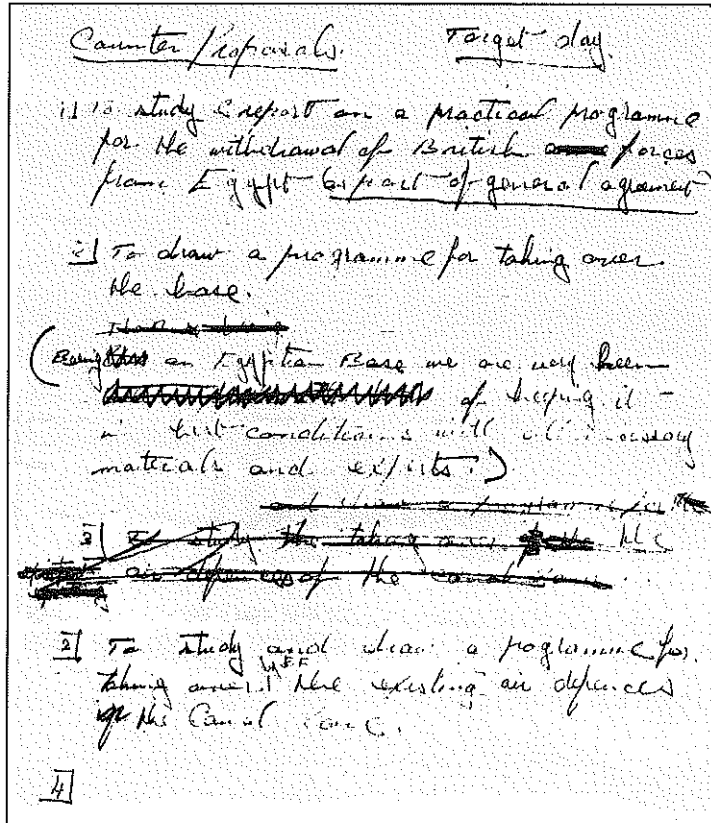 Counter Proposals. Target day.
1) To study & report on a practical programme
for the withdrawal of British forces
from Egypt as part of general agrement
2] To draw a programme for taking over
the base.
(Being an Egyptian Base we are very keen
of keeping it -
in best conditions with all necessary
materials and experts.)
and draw a programme for
3] To study the taking over of the the
air defences of the canal zone
3] To study and draw a programme for
taking over the existing air defences
of the Canal Zone.
4]